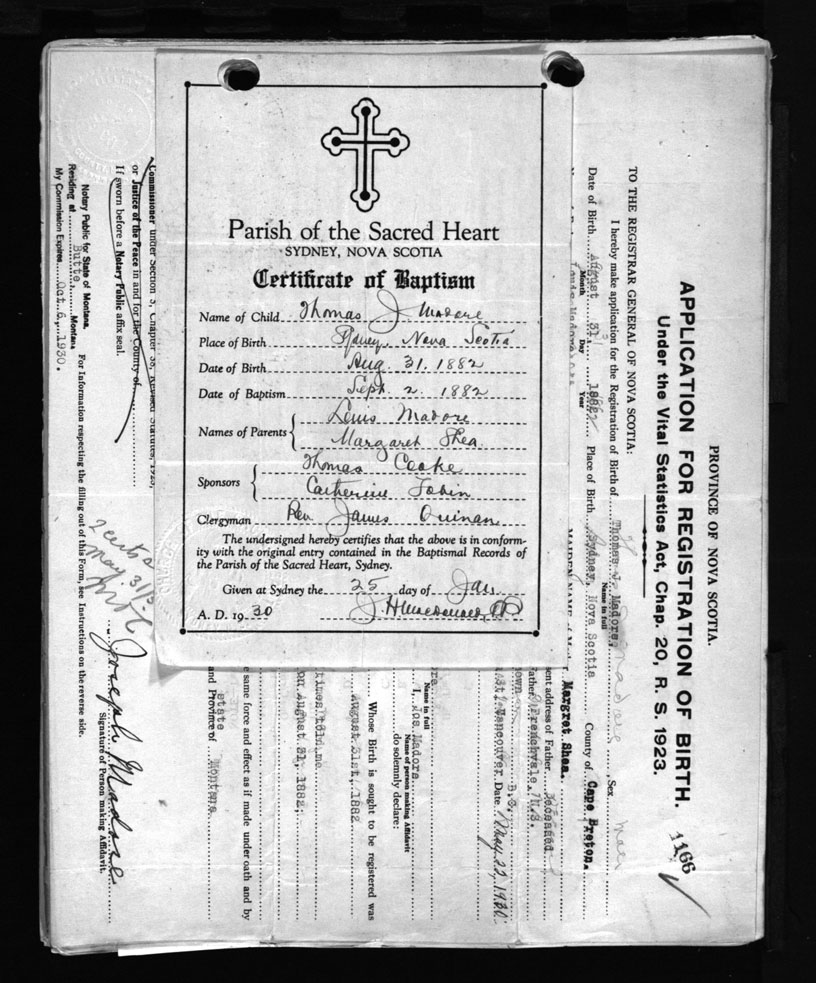 Parish of the Sacred Heart
SYDNEY, NOVA SCOTIA
Certificate of Baptism
Name of Child Thomas J Madore
Place of Birth Sydney, Nova Scotia
Date of Birth Aug. 31. 1882
Date of Baptism Sept. 2. 1882
Names of Parents { Louis Madore
Margaret Shea
Sponsors { Thomas Cooke
Catherine Tobin
Clergyman Rev James Quinan
The undersigned hereby certifies that the above is in conform-
ity with the original entry contained in the Baptismal Records of
the Parish of the Sacred Heart, Sydney.
Given at Sydney the 25 day of Jan
A. D. 19 30 J. H. Macdonald, PP
PROVINCE OF NOVA SCOTIA.
APPLICATION FOR REGISTRATION OF BIRTH.
Under the Vital Statistics Act, Chap. 20, R. S. 1923.
1166
TO THE REGISTRAR GENERAL OF NOVA SCOTIA:
I hereby make application for the Registration of Birth of Thomas J. Madora, Sex
Name in full
Date of Birth August 31 1882 Place of Birth Sydney, Nova Scotia County of Cape Breton.
Month Day Year
MAIDEN NAME of Mother Margret Shea.
sent address of Father Deceased
Father Frenchvale, N.S.
own B.C.
Vancouver Date May 22, 1930
Name in full
I, Jos. Madora
Name of person making Affidavit
do solemnly declare:
Whose Birth is sought to be registered was
August 31st, 1882
times told me
on August 31, 1882.
e same force and effect as if made under oath and by
State
and Province of Montana
Commissioner under Section 3, Chapter 38, Revised Statutes, 1923,
or Justice of the Peace in and for the County of
If sworn before a Notary Public affix seal.
Notary Public for State of Montana.
Residing at Butte Montana
My Commission Expires Oct. 6, 1930.
For Information respecting the filling out of this Form, see Instructions on the reverse side.
May 31/3
Joseph Madore
Signature of Person making Affidavit.